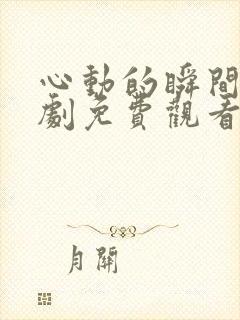 心動的瞬間
劇免費觀看
月關